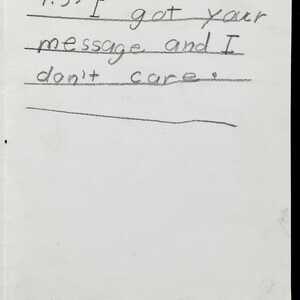 I got your
message and I
don't care.